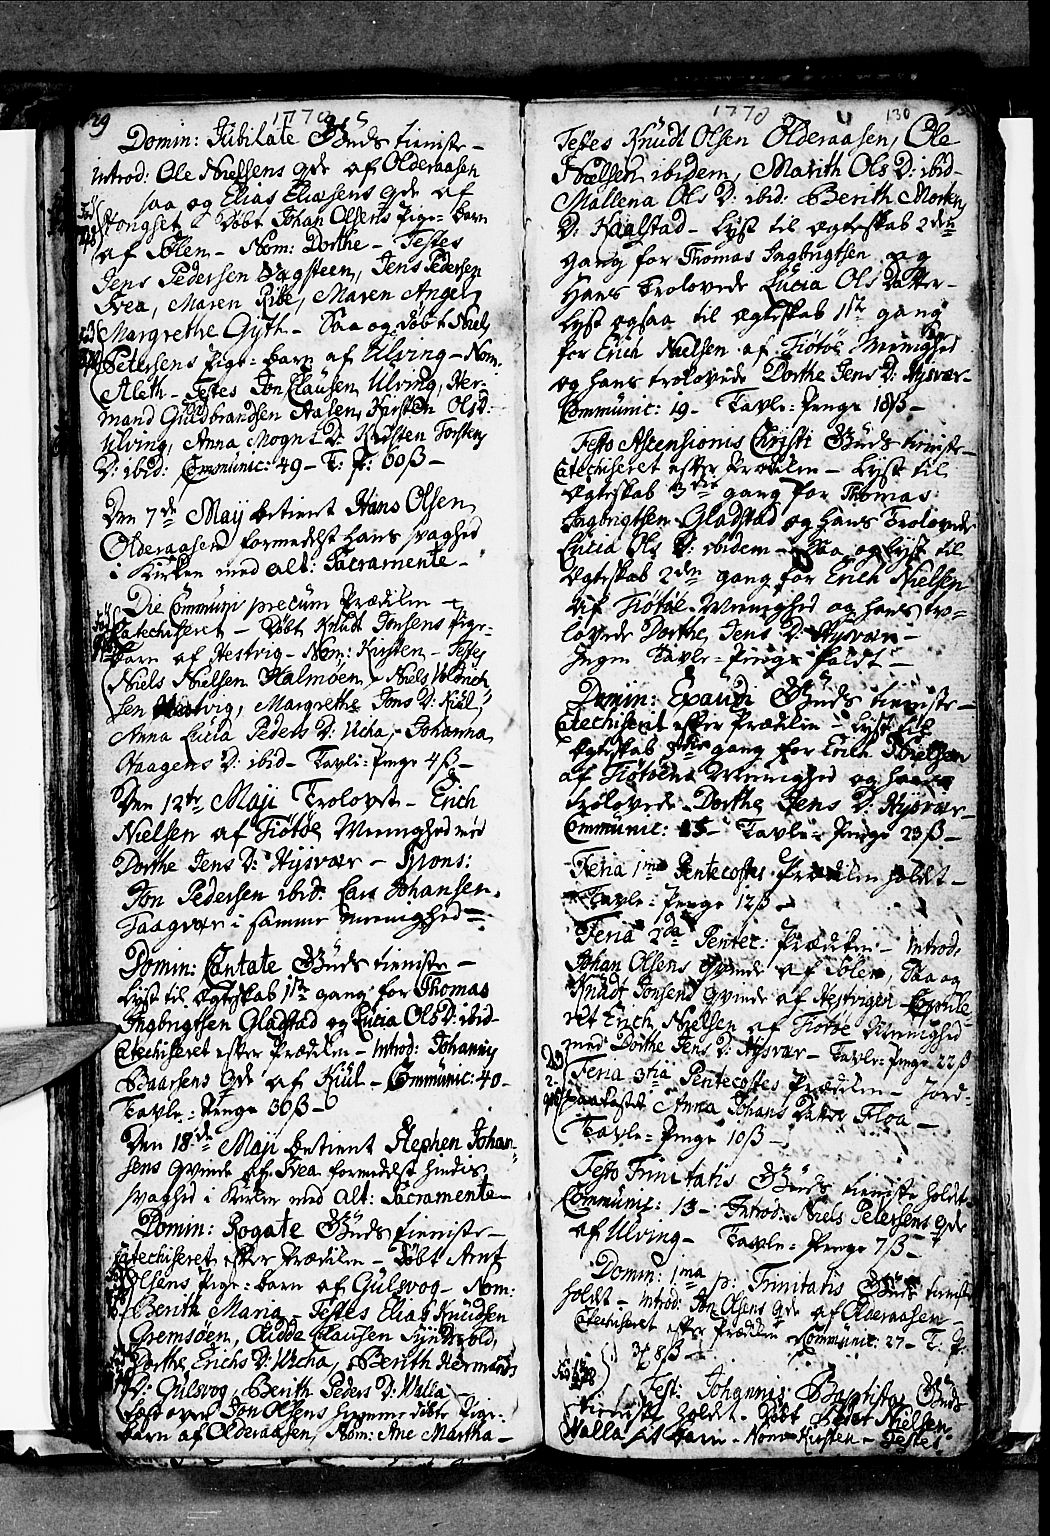 129
1770
Domin: Jubilate Guds tieniste –
introd: Ole Nielsens qde af Olderaasen
saa og Elias Eliasens qde af
Døbt Johan Olsens Pige-Barn
af Sølen – Nom: Dorthe – Testes
Jens Pedersen Vagsteen, Jens Pedersen
Svea, Maren Ribe, Maren Anger,
Margrethe Gyth – Saa og døbt Niels
Petersens Pige-barn af Ulving – Nom:
Aleth – Testes Jon Clausen Ulving, Her-
mand Guldbrandsen Aasen, Kirsten Ols D:
Ulving, Anna Mogns D: Kirsten Torsten
D: ibid: Communic: 49 – T: P: 60 ß –
Den 7de Maij betient Hans Olsen
Olderaasen formedelst hans svaghed
i Kirken med alt: Sacramente –
Die Communi precum Prædiken –
Catechiseret – Døbt Knud Jonsens Pige-
barn af Hestvig – Nom: Kirsten – Testes
Niels Nielsen Halmøen, Niels
sen Margrethe Jons D: Kiül,
Anna Lucia Peders D: Uicha, Johanna
Haagens D: ibid – Tavle-Penge 4 ß –
Den 12te Maji Trolovet – Erich
Nielsen af Tiøtøe Menighed med
Dorthe Jens D: Hysvær – Spons:
Jon Pedersen ibid: Lars Johansen
Taagvær i samme menighed –
Domin: Cantate Guds tieniste –
Lyst til Ægteskab 1ste gang for Thomas
Ingbrigtsen Gladstad og Lucia Ols D: ibid –
Catechiseret efter Prædiken – Introd: Johannis
Baarsens qde af Kiül – Communic: 40 –
Tavle-Penge 30 ß –
Den 18de Maji betient Stephen Johan-
sens qvinde af Svea formedelst hindis
svaghed i Kirken med alt: Sacramente –
Domin: Rogate Guds tieniste –
Catechiseret efter Prædiken – Døbt Arnt
Olsens Pige-barn af Gulsvog – Nom:
Berith Maria – Testes Elias Knudsen
Gremsøen, Clausen
Dorthe Erichs D: Uicha, Berith Hermands
D: Gulsvog, Berith Peders D: Walla –
læst over Jon Olsens hiemme døbte Pige-
barn af Olderaasen, Nom: Ane Martha –
1770
130
Testes Knudt Olsen Olderaasen, Ole
Nielsen ibidem, Marith Ols D: ibid –
Mallena Ols D: ibid: Berith Mortens
D: Kaalstad – Lyst til Ægteskab 2den
gang for Thomas Ingbrigtsen og
Hans Trolovede Lucia Ols Datter –
Lyst ogsaa til Ægteskab 1ste gang
for Erich Nielsen af Tiøtøe Menighed
og hans trolovede Dorthe Jens D: Hysvær –
Communic: 19 – Tavle-Penge 18 ß –
Festo Ascensionis Christi Guds tieniste –
Catechiseret efter Prædiken – Lyst til
Ægteskab 3die gang for Thomas
Ingbrigtsen Gladstad og hans Trolovede
Lucia Ols D: ibidem – Saa og lyst til
Ægteskab 2den gang for Erich Nielsen
af Tiøtøe Menighed og hans tro-
lovede Dorthe Jens D: Hysvær –
Ingen Tavle-Penge faldt –
Domin: Exaudi Guds tieniste –
Catechiseret efter Prædiken – Lyst til
Ægteskab 3die gang for Erich Nielsen
af Tiøtøe Menighed og hans
trolovede Dorthe Jens D: Hysvær –
Communic: 15 – Tavle-Penge 23 ß –
Feria 1ma Pentecostes Prædiken holdt –
Tavle-Penge 12 ß –
Feria 2da Pentec: Prædiken – Introd:
Johan Olsens qvinde af Sølen, Saa og
Knudt Jonsens qvinde af Hestvigen – Copule-
ret Erich Nielsen af Tiøtøe Menighed
med Dorthe Jens D: Hysvær – Tavle-Penge 22 ß
Feria 3tia Pentecostes Prædiken – Jord-
paakastet Anna Johans Datter Floa –
Tavle-Penge 10 ß –
Festo Trinitatis Guds tieniste holdt –
Communic: 13 – Introd: Niels Petersens qde
af Ulving – Tavle-Penge 7 ß –
Domin: 1ma p: Trinitatis Guds tieniste
holdt – Introd: Jon Olsens qde af Olderaasen –
Catechiseret efter Prædiken Communic: 27 – T: P:
8 ß –
Fest: Johannis Baptistæ Guds
tieniste holdt – Døbt Nielsen
Walla barn – Nom: Kirsten – Testes